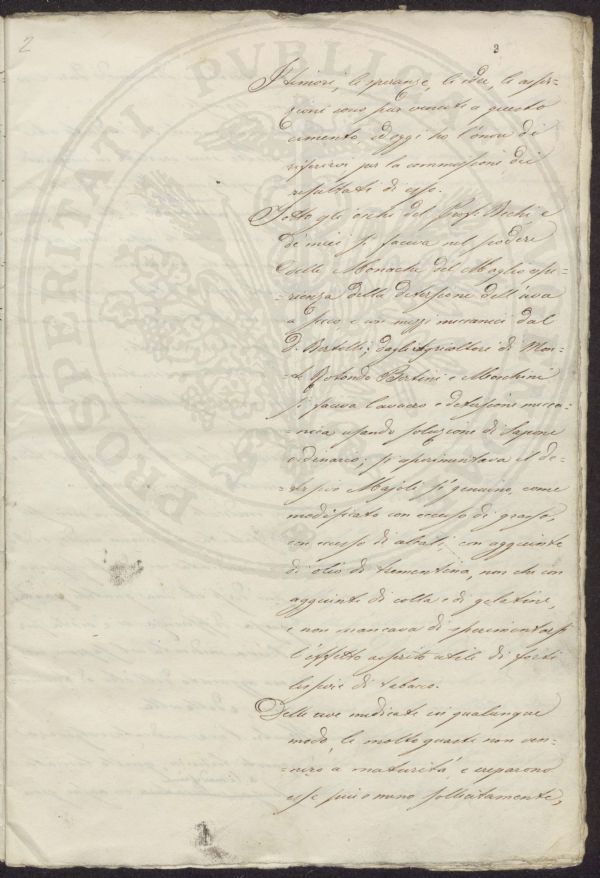 2
3
PROSPERITATI PUBLICAE
I timori, le speranze, le idee, le aspira-
zioni sono pur venute a questo
cimento ed oggi ho l'onore di
riferirvi per la commissione dei
resultati di esso.
Sotto gli occhi del Prof. Bechi e
de' miei si faceva nel podere
delle Monache del Maglio espe-
rienza della detersione dell'uva
a secco e con mezzi meccanici dal
D. Bertelli; dagli Agricoltori di Mon-
te Rotondo Bertini e Marchini
si faceva lavacro e detersione mecca-
nica usando soluzione di sapone
ordinario, si sperimentava il de-
tersivo Majoli sì genuino, come
modificato con eccesso di grasso,
con eccesso di alcali, con aggiunte
di olio di trementina, non che con
aggiunte di colla e di gelatina,
e non mancava di sperimentarsi
l'effetto asserito utile di forti
lisivie di tabacco.
Delle uve medicate in qualunque
modo, le molto guaste non ven-
nero a maturità e creparono
esse più o meno sollecitamente,